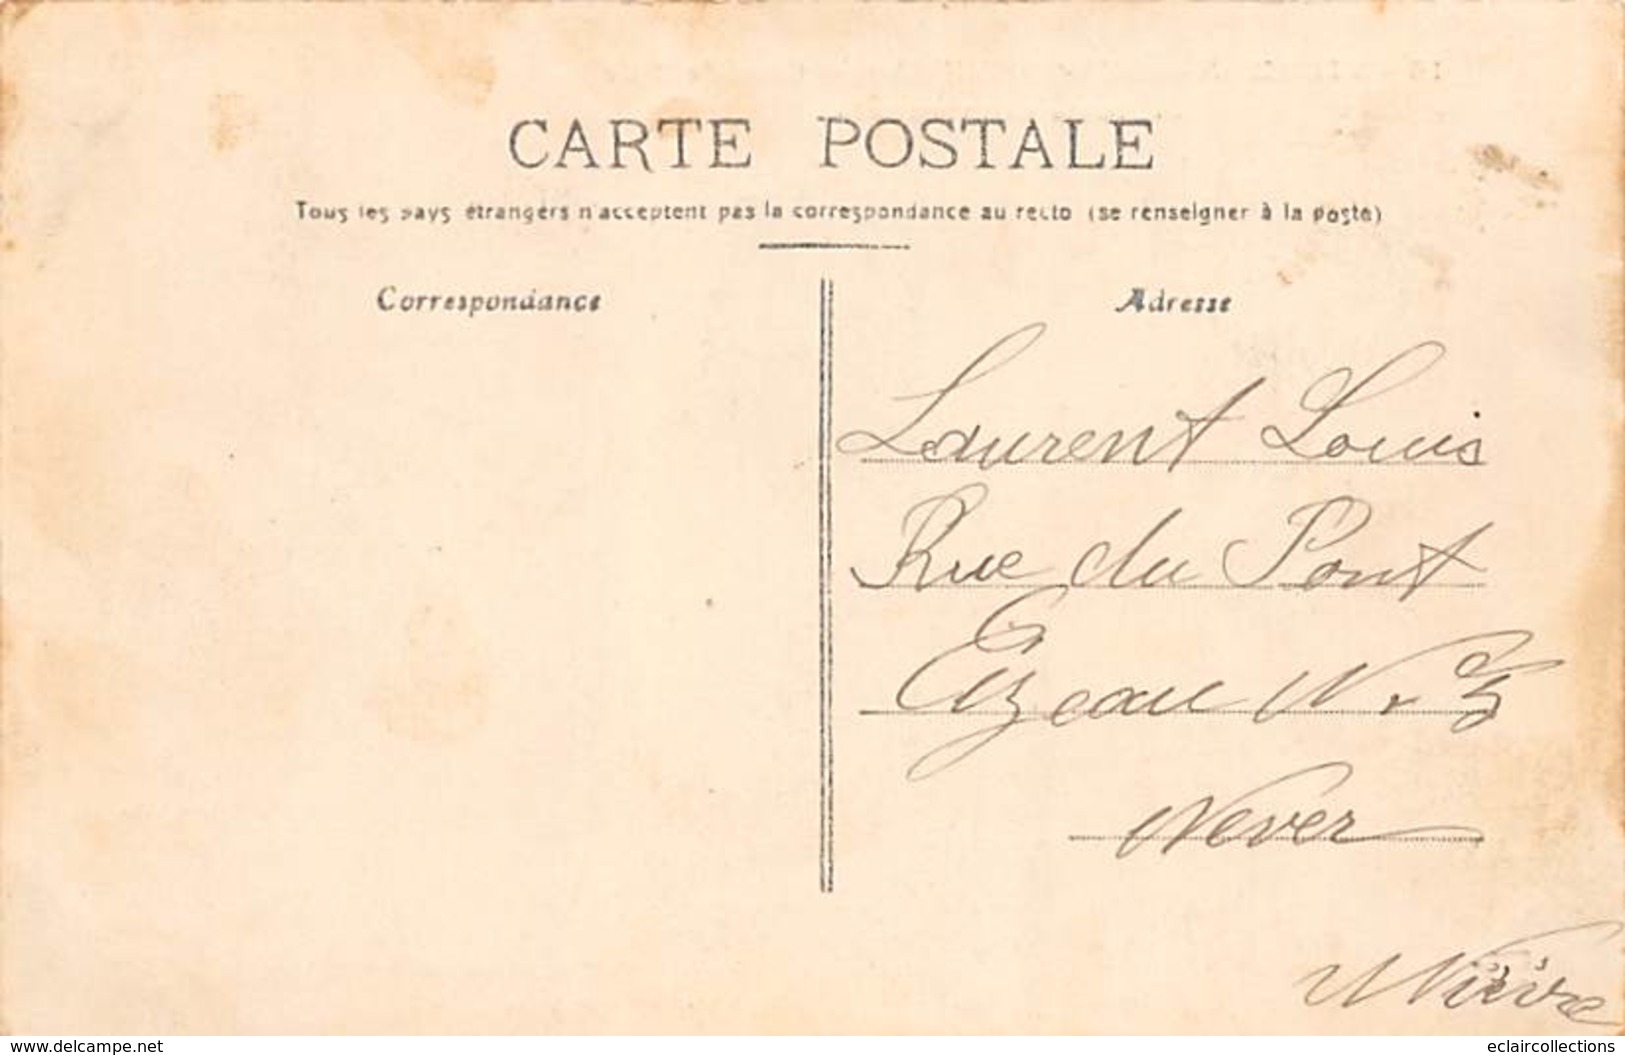 CARTE POSTALE
Tous les pays étrangers n'acceptent pas la correspondance au recto (se renseigner à la poste)
Correspondance
Adresse
Laurent Louis
Rue du Pont
Cizeau N
Never
Nièvre
delcampe.com
eclaircollections